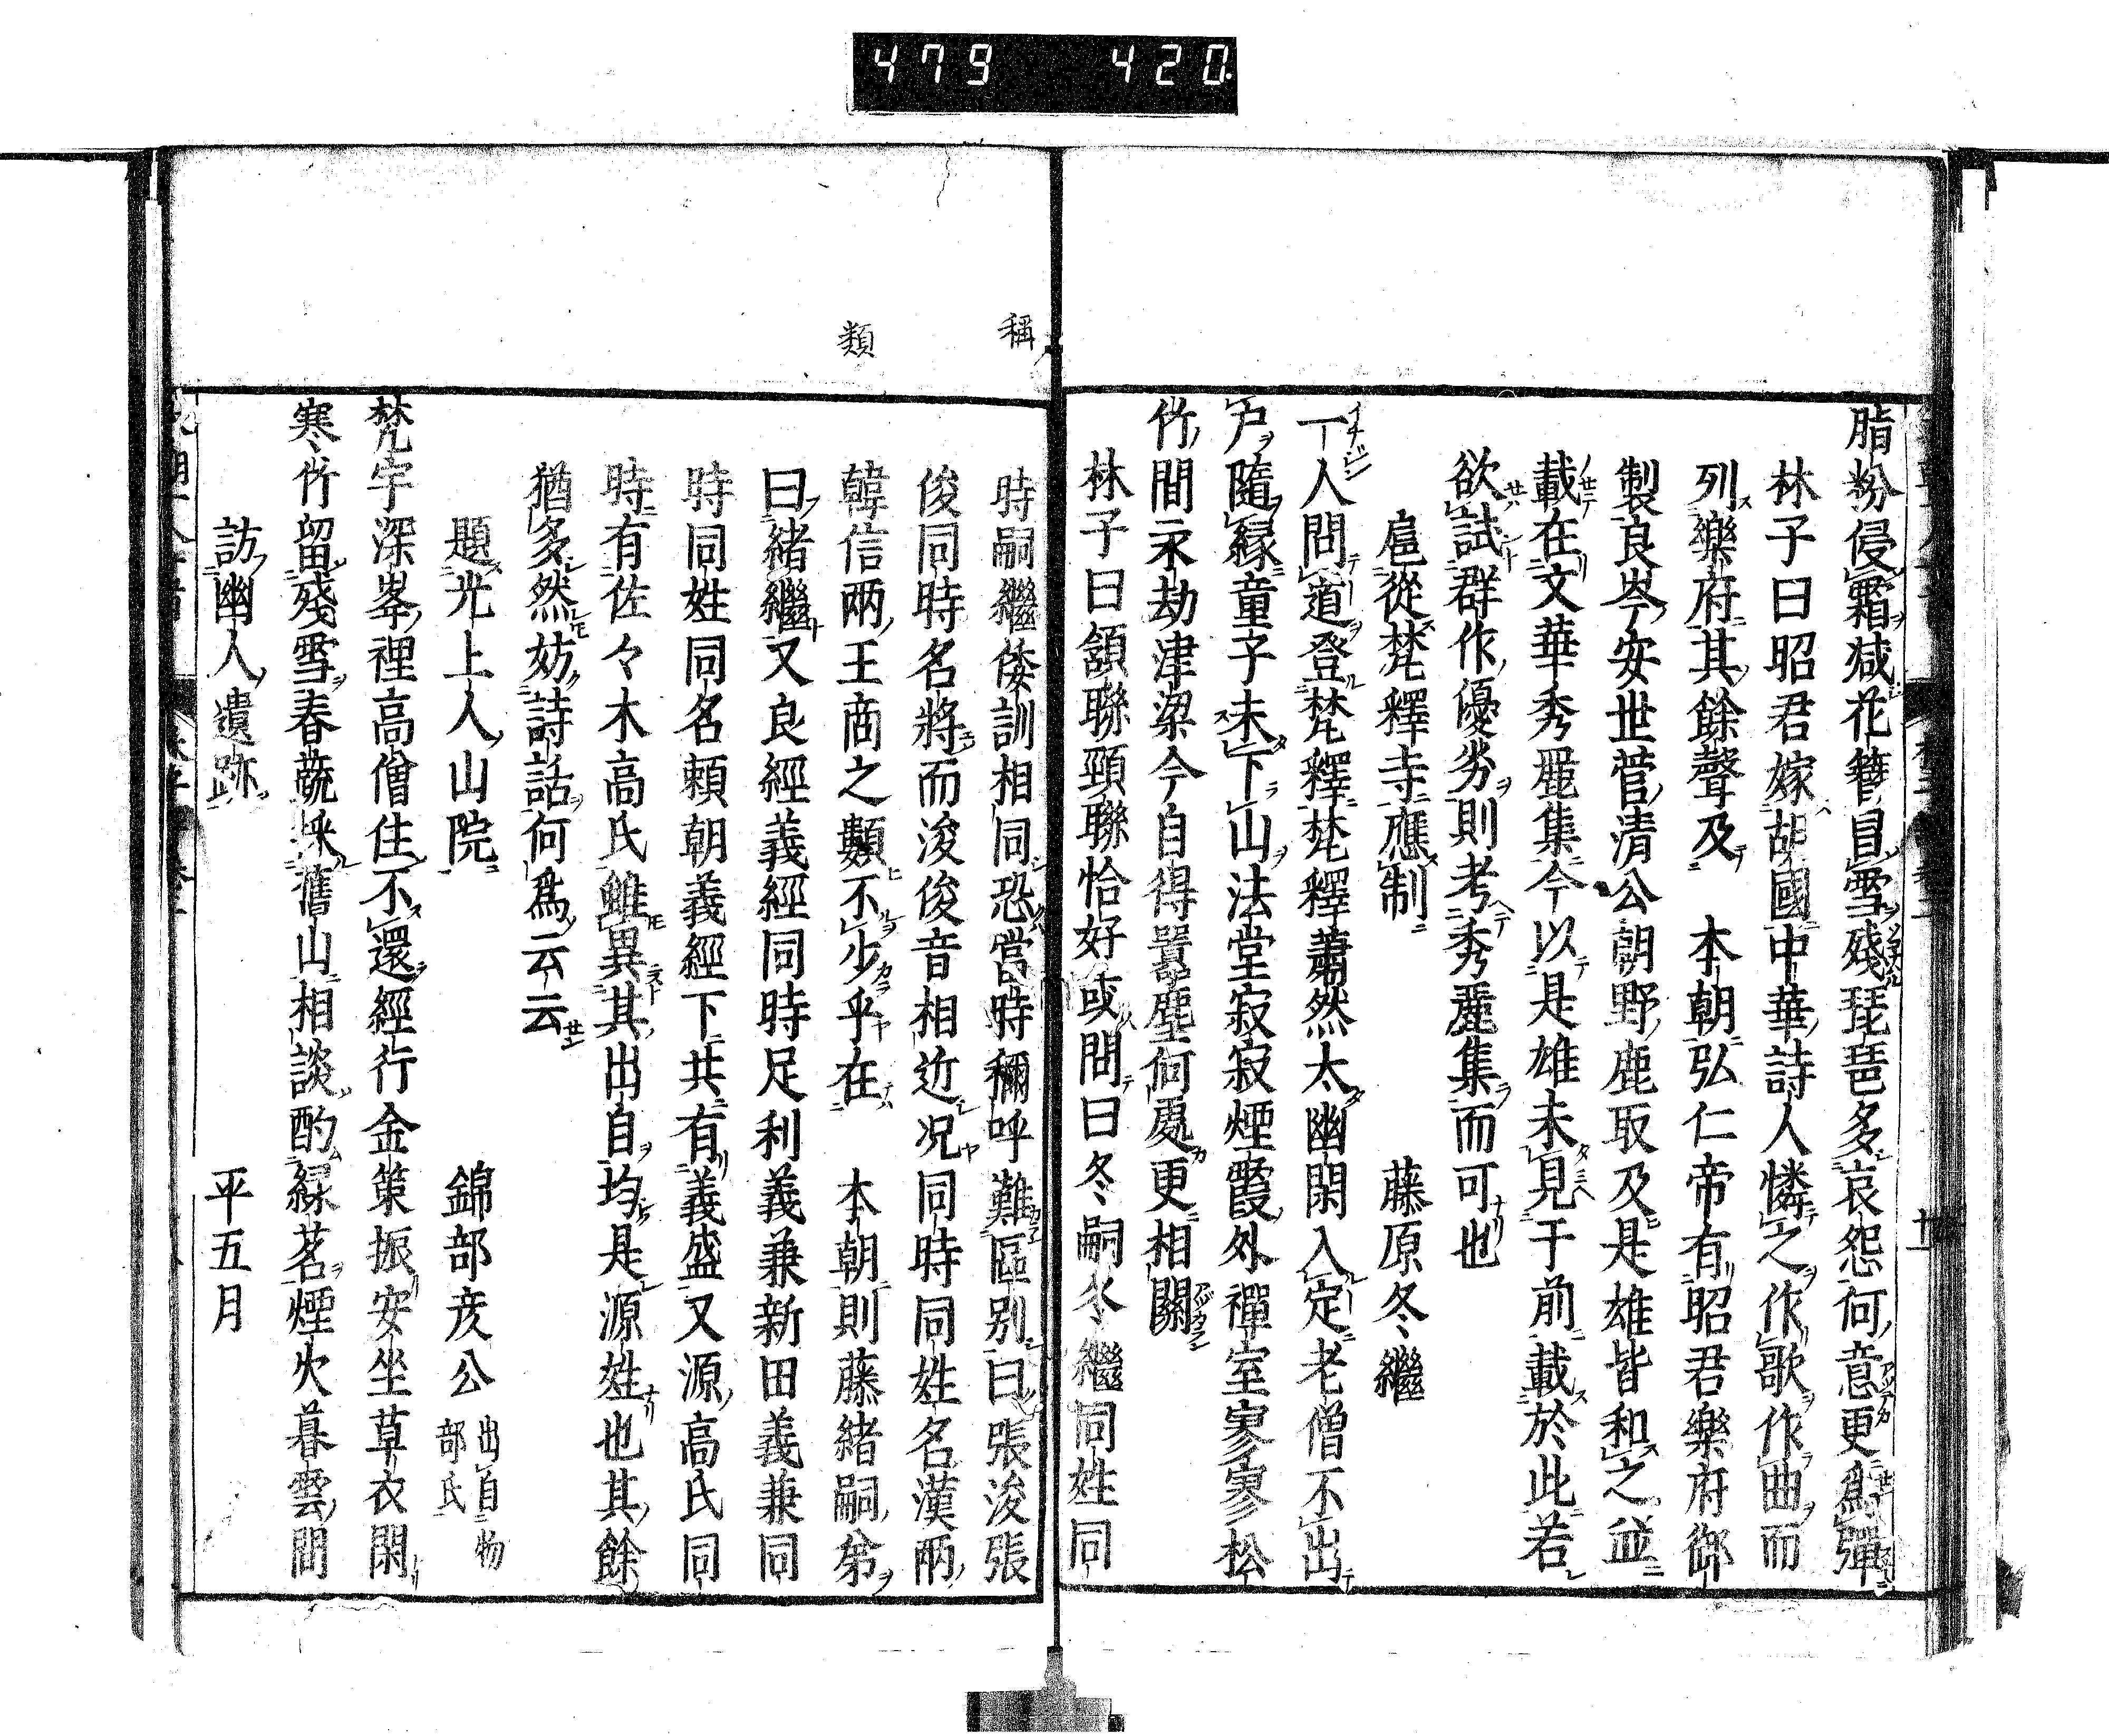 479 420
脂粉侵霜減花簪冒雪殘琵琶多哀怨何意更爲彈
林子曰昭君嫁胡國中華詩人憐之作歌作曲而
列樂府其餘聲及 本朝弘仁帝有昭君樂府御
製良岑安世菅清公朝野鹿取及是雄皆和之並
載在文華秀麗集今以是雄未見于前載於此若
欲試群作優劣則考秀麗集而可也
扈從梵釋寺應制 藤原冬繼
一人問道登梵釋梵釋蕭然太幽閑入定老僧不出
戶隨緣童子未下山法堂寂寂煙霞外禪室寥寥松
竹間永劫津梁今自得囂塵何處更相關
林子曰頷聯頸聯恰好或問曰冬嗣冬繼同姓同
稱
類
時嗣繼倭訓相同恐當時稱呼難區別曰張浚張
俊同時名將而浚俊音相近况同時同姓名漢兩
韓信兩王商之類不少乎在 本朝則藤緒嗣弟
曰緒繼又良經義經同時足利義兼新田義兼同
時同姓同名賴朝義經下共有義盛又源高氏同
時有佐々木高氏雖異其出自均是源姓也其餘
猶多然妨詩話何爲云云
題光上人山院 錦部彦公 出自物部氏
梵宇深峯裡高僧住不還經行金策振安坐草衣閑
寒竹留殘雪春蔬採舊山相談酌綠茗煙火暮雲間
訪幽人遺跡 平五月